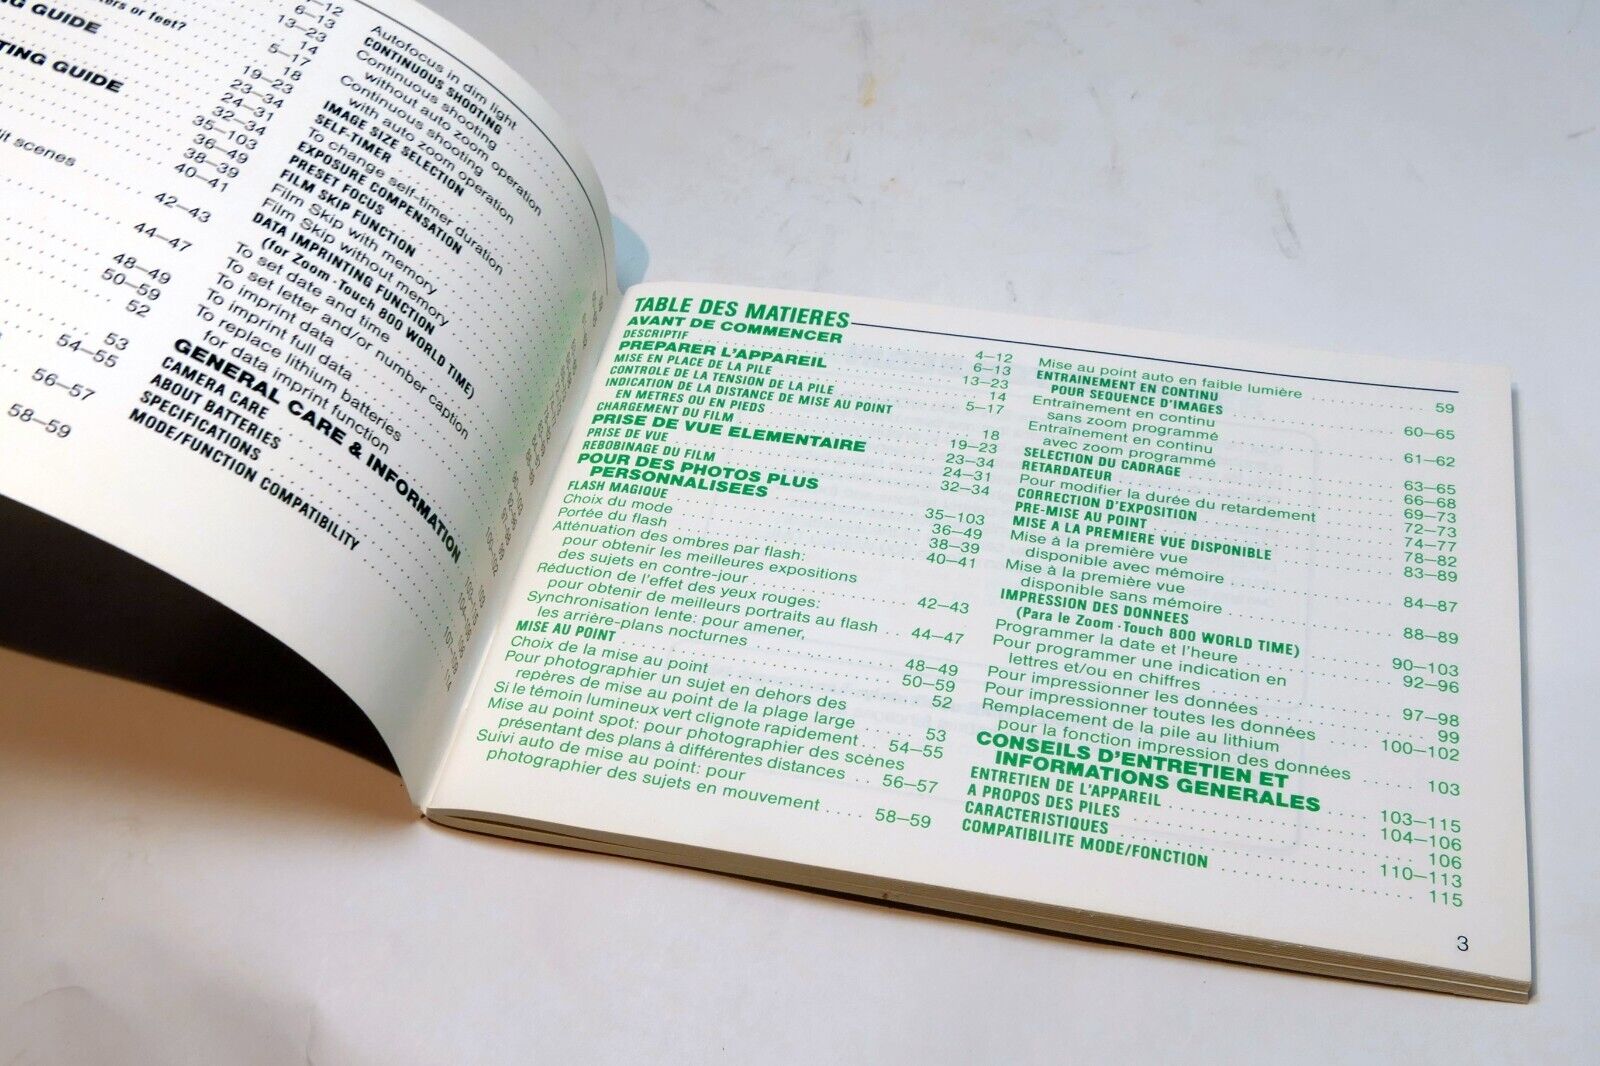 4–12
6–13
13–23
14
5–17
18
19–23
23–34
24–31
32–34
35–103
36–49
38–39
40–41
42–43
44–47
48–49
50–59
52
53
54–55
56–57
58–59
ters or feet?
NG GUIDE
TING GUIDE
it scenes
Autofocus in dim light
CONTINUOUS SHOOTING
Continuous shooting
without auto zoom operation
Continuous shooting
with auto zoom operation
IMAGE SIZE SELECTION
SELF-TIMER
To change self-timer duration
EXPOSURE COMPENSATION
PRESET FOCUS
FILM SKIP FUNCTION
Film Skip with memory
Film Skip without memory
DATA IMPRINTING FUNCTION
(for Zoom·Touch 800 WORLD TIME)
To set date and time
To set letter and/or number caption
To imprint data
To imprint full data
To replace lithium batteries
for data imprint function
GENERAL CARE & INFORMATION
CAMERA CARE
ABOUT BATTERIES
SPECIFICATIONS
MODE/FUNCTION COMPATIBILITY
TABLE DES MATIERES
AVANT DE COMMENCER 4–12
DESCRIPTIF 6–13
PREPARER L'APPAREIL 13–23
MISE EN PLACE DE LA PILE 14
CONTROLE DE LA TENSION DE LA PILE 5–17
INDICATION DE LA DISTANCE DE MISE AU POINT
EN METRES OU EN PIEDS 18
CHARGEMENT DU FILM 19–23
PRISE DE VUE ELEMENTAIRE 23–34
PRISE DE VUE 24–31
REBOBINAGE DU FILM 32–34
POUR DES PHOTOS PLUS
PERSONNALISEES 35–103
FLASH MAGIQUE 36–49
Choix du mode 38–39
Portée du flash 40–41
Atténuation des ombres par flash:
pour obtenir les meilleures expositions
des sujets en contre-jour 42–43
Réduction de l'effet des yeux rouges:
pour obtenir de meilleurs portraits au flash 44–47
Synchronisation lente: pour amener,
les arrière-plans nocturnes 48–49
MISE AU POINT 50–59
Choix de la mise au point 52
Pour photographier un sujet en dehors des
repères de mise au point de la plage large 53
Si le témoin lumineux vert clignote rapidement 54–55
Mise au point spot: pour photographier des scènes
présentant des plans à différentes distances 56–57
Suivi auto de mise au point: pour
photographier des sujets en mouvement 58–59
Mise au point auto en faible lumière 59
ENTRAINEMENT EN CONTINU
POUR SEQUENCE D'IMAGES 60–65
Entraînement en continu
sans zoom programmé 61–62
Entraînement en continu
avec zoom programmé 63–65
SELECTION DU CADRAGE 66–68
RETARDATEUR 69–73
Pour modifier la durée du retardement 72–73
CORRECTION D'EXPOSITION 74–77
PRE-MISE AU POINT 78–82
MISE A LA PREMIERE VUE DISPONIBLE 83–89
Mise à la première vue
disponible avec mémoire 84–87
Mise à la première vue
disponible sans mémoire 88–89
IMPRESSION DES DONNEES
(Para le Zoom·Touch 800 WORLD TIME) 90–103
Programmer la date et l'heure 92–96
Pour programmer une indication en
lettres et/ou en chiffres 97–98
Pour impressionner les données 99
Pour impressionner toutes les données 100–102
Remplacement de la pile au lithium
pour la fonction impression des données 103
CONSEILS D'ENTRETIEN ET
INFORMATIONS GENERALES 103–115
ENTRETIEN DE L'APPAREIL 104–106
A PROPOS DES PILES 106
CARACTERISTIQUES 110–113
COMPATIBILITE MODE/FONCTION 115
3